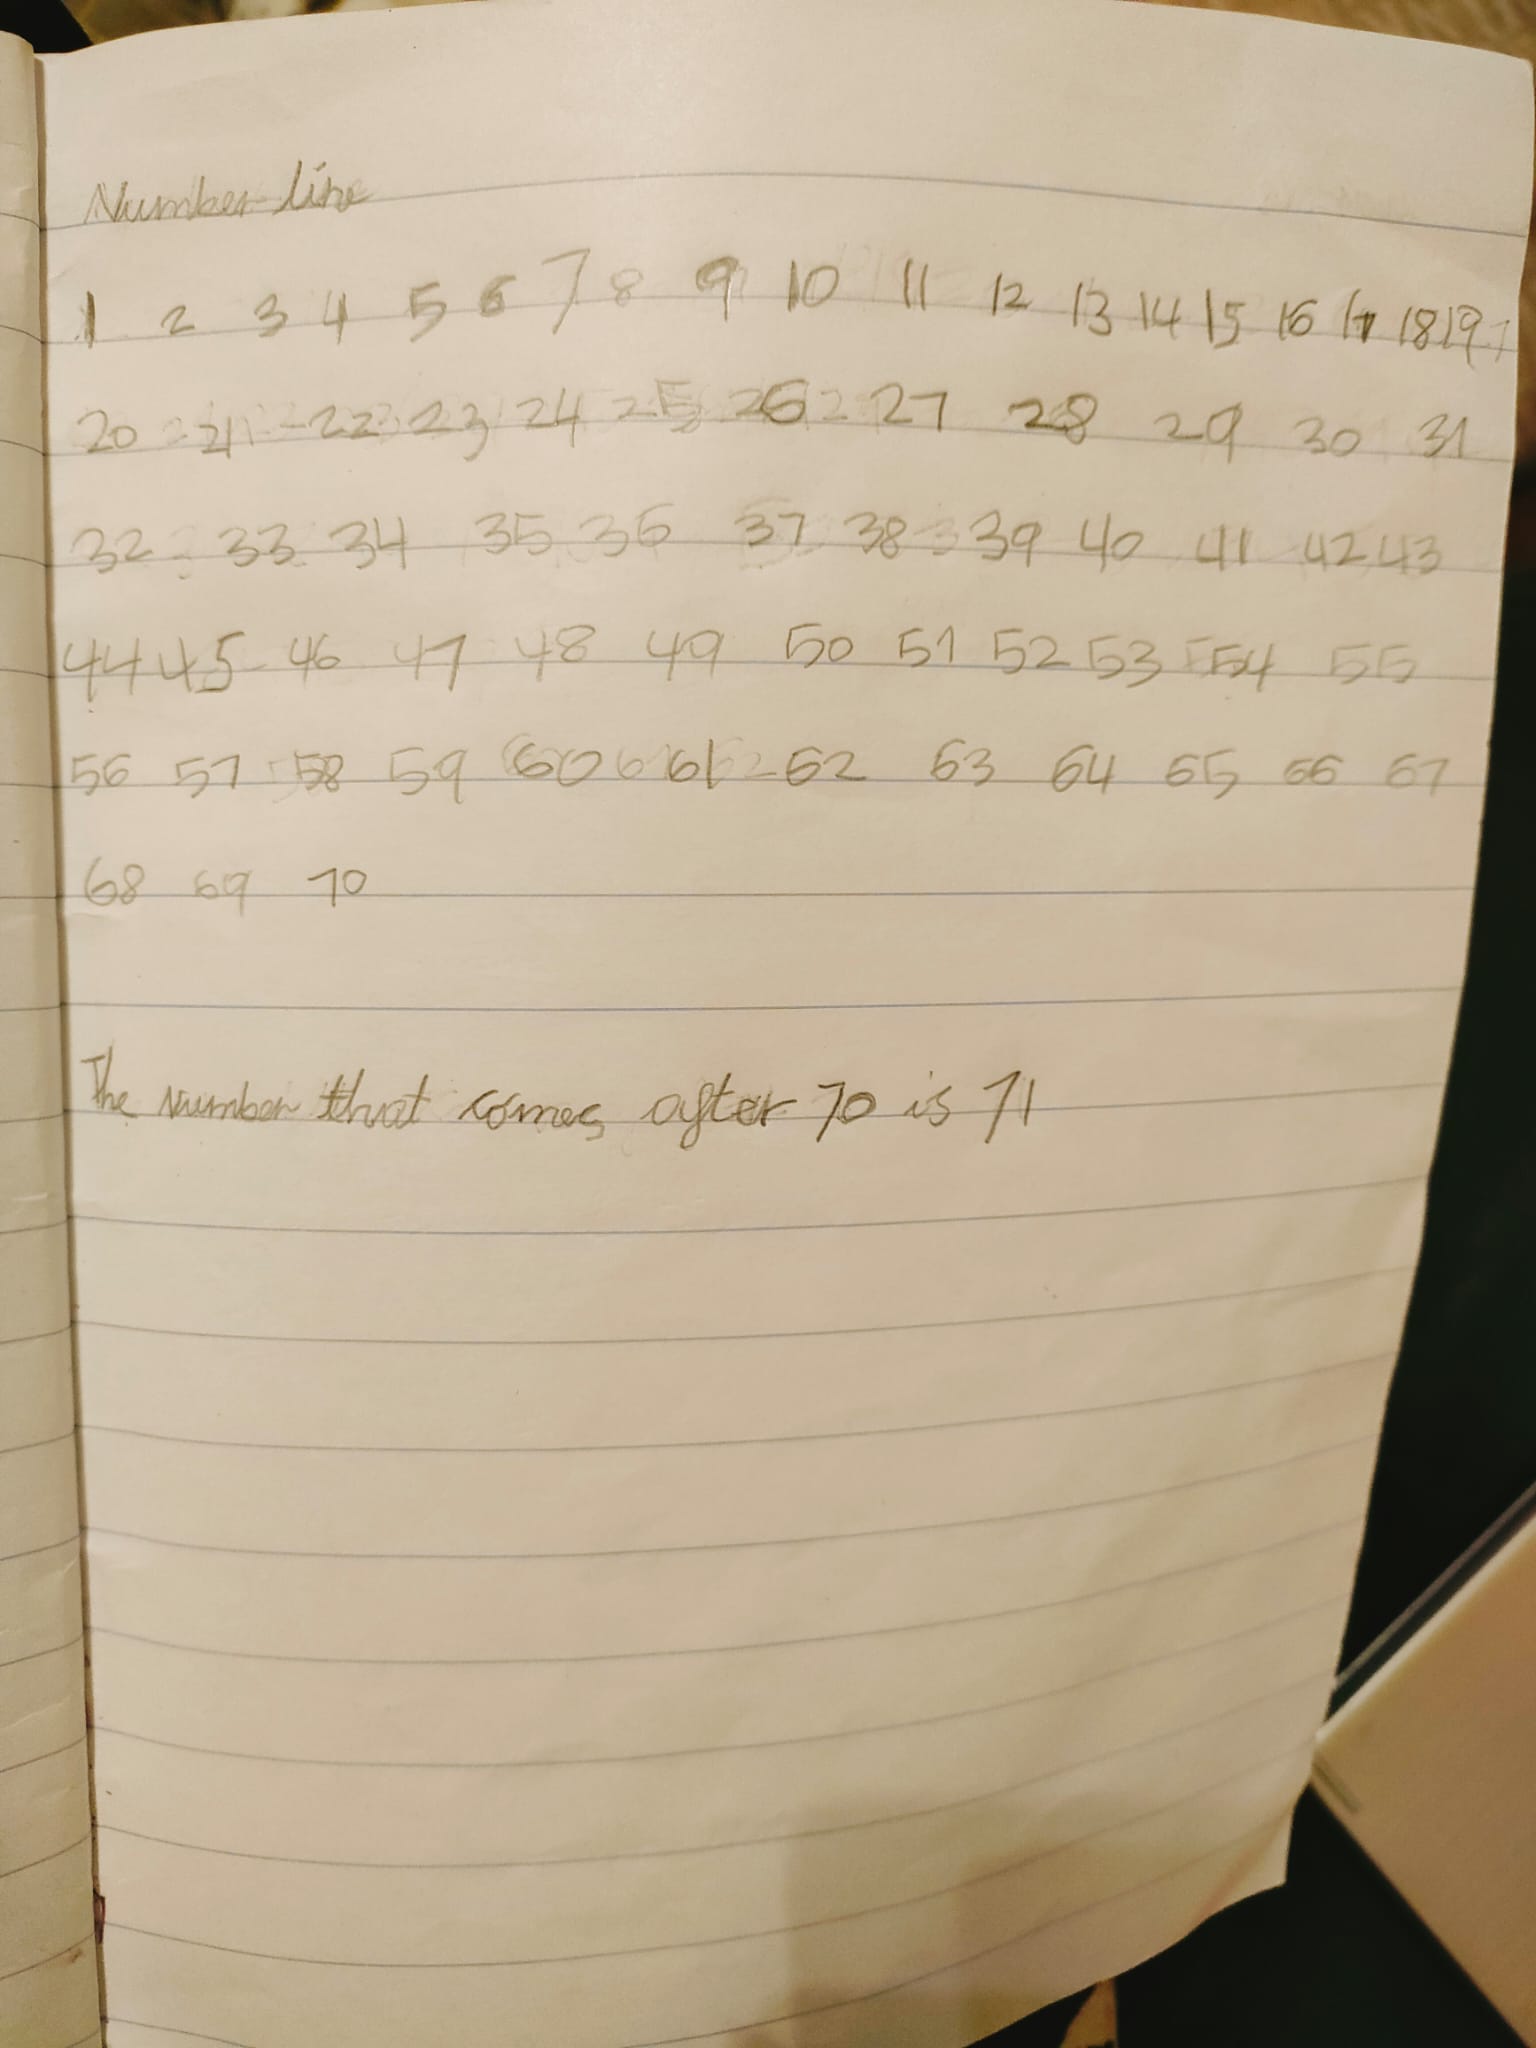 Number line
1 2 3 4 5 6 7 8 9 10 11 12 13 14 15 16 17 18 19
20 21 22 23 24 25 26 27 28 29 30 31
32 33 34 35 36 37 38 39 40 41 42 43
44 45 46 47 48 49 50 51 52 53 54 55
56 57 58 59 60 61 62 63 64 65 66 67
68 69 70
The number that comes after 70 is 71